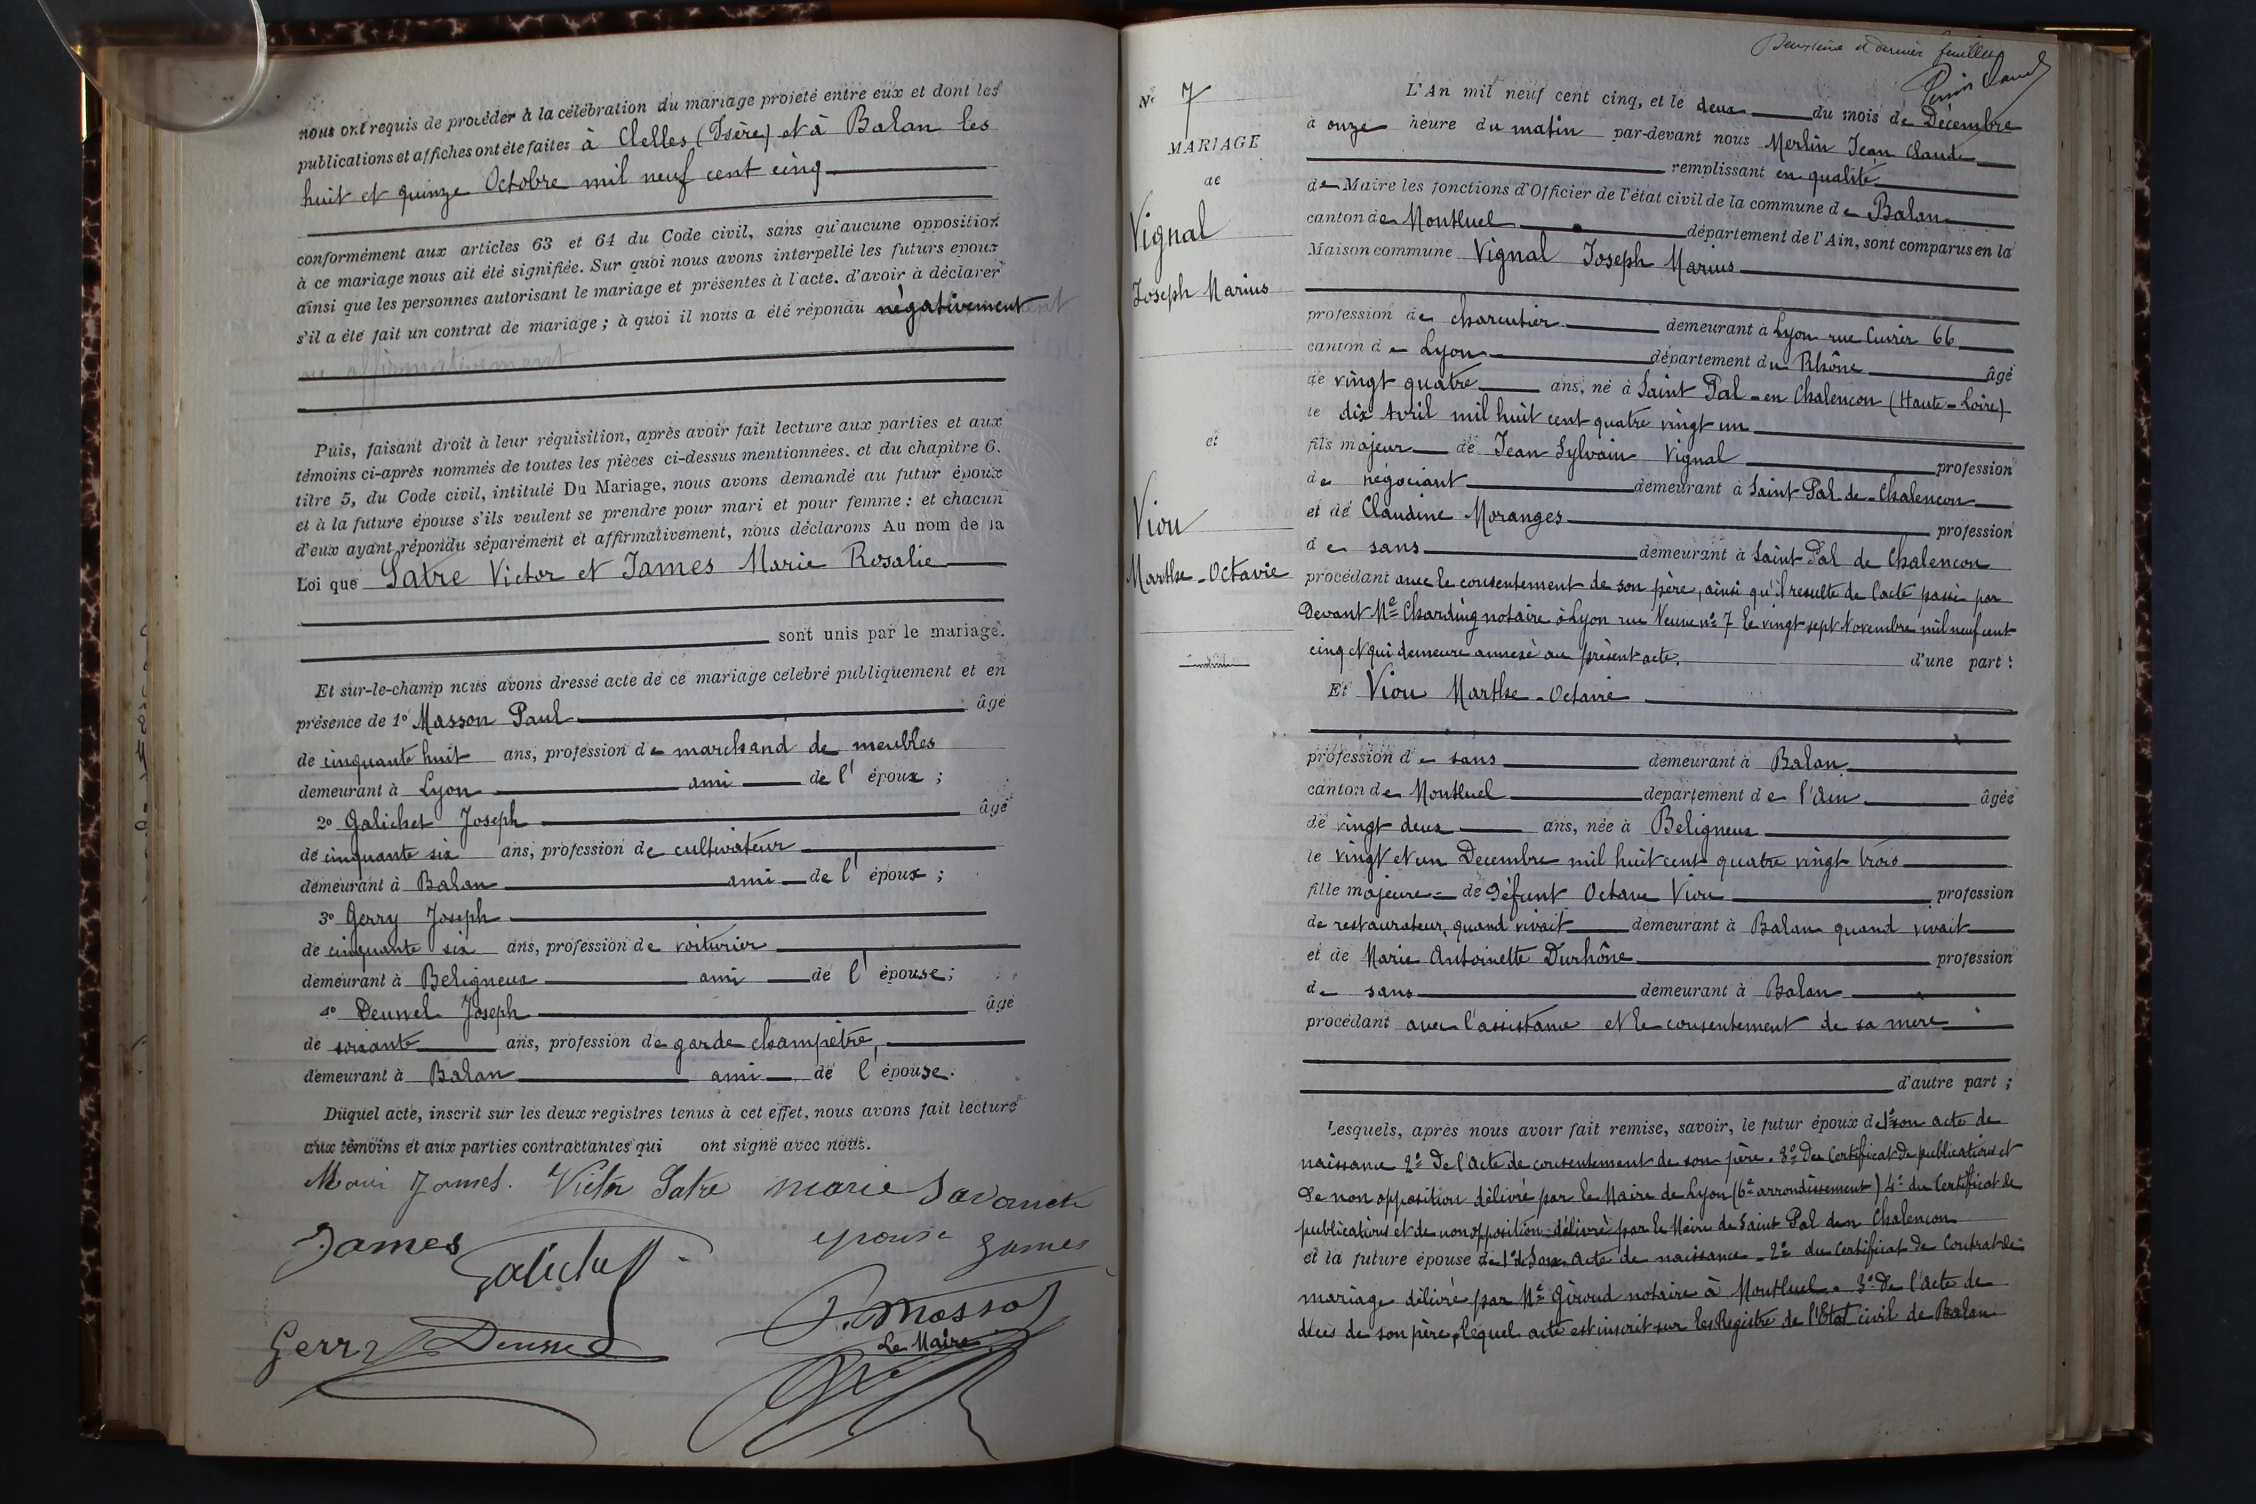 nous ont requis de procéder à la célébration du mariage projeté entre eux et dont les
publications et affiches ont été faites à Clelles (Isère) et à Balan les
huit et quinze Octobre mil neuf cent cinq
conformément aux articles 63 et 64 du Code civil, sans qu'aucune opposition
à ce mariage nous ait été signifiée. Sur quoi nous avons interpellé les futurs époux
ainsi que les personnes autorisant le mariage et présentes à l'acte, d'avoir à déclarer
s'il a été fait un contrat de mariage ; à quoi il nous a été répondu négativement
ou affirmativement
Puis, faisant droit à leur réquisition, après avoir fait lecture aux parties et aux
témoins ci-après nommés de toutes les pièces ci-dessus mentionnées, et du chapitre 6,
titre 5, du Code civil, intitulé Du Mariage, nous avons demandé au futur époux
et à la future épouse s'ils veulent se prendre pour mari et pour femme ; et chacun
d'eux ayant répondu séparément et affirmativement, nous déclarons Au nom de la
Loi que Satre Victor et James Marie Rosalie
sont unis par le mariage.
Et sur-le-champ nous avons dressé acte de ce mariage célébré publiquement et en
présence de 1° Masson Paul âgé
de cinquante huit ans, profession de marchand de meubles
demeurant à Lyon ami de l'époux ;
2° Galichet Joseph âgé
de cinquante six ans, profession de cultivateur
demeurant à Balan ami de l'époux ;
3° Gerry Joseph
de cinquante six ans, profession de voiturier
demeurant à Beligneux ami de l'épouse ;
4° Joseph âgé
de soixante ans, profession de garde champêtre,
demeurant à Balan ami de l'épouse.
Duquel acte, inscrit sur les deux registres tenus à cet effet, nous avons fait lecture
aux témoins et aux parties contractantes qui ont signé avec nous.
James. Victor Satre Marie
James Galichet épouse James
Gerry P. Masson
Le Maire
Deuxième et dernier feuillet
N° 7
MARIAGE
de
Vignal
Joseph Marius
et
Viou
Marthe-Octavie
L'An mil neuf cent cinq, et le deux du mois de Décembre
à onze heure du matin par-devant nous Merlin Jean Claude
remplissant en qualité
de Maire les fonctions d'Officier de l'état civil de la commune de Balan
canton de Montluel département de l'Ain, sont comparus en la
Maison commune Vignal Joseph Marius
profession de charcutier demeurant à Lyon rue Cuvier 66
canton de Lyon département du Rhône âgé
de vingt quatre ans, né à Saint Pal-en Chalencon (Haute-Loire)
le dix Avril mil huit cent quatre vingt un
fils majeur de Jean Sylvain Vignal profession
de négociant demeurant à Saint Pal de-Chalencon
et de Claudine Moranges profession
de sans demeurant à Saint Pal de Chalencon
procédant avec le consentement de son père, ainsi qu'il resulte de l'acte passé par
Devant Me notaire à Lyon rue Neuve n° 7 le vingt sept Novembre mil neuf cent
cinq et qui demeure annexé au présent acte. d'une part :
Et Viou Marthe-Octavie
profession de sans demeurant à Balan
canton de Montluel département de l'Ain âgée
de vingt deux ans, née à Beligneux
le vingt et un Decembre mil huit cent quatre vingt trois
fille majeure de défunt Octave Viou profession
de restaurateur, quand vivait demeurant à Balan quand vivait
et de Marie Antoinette Durhône profession
de sans demeurant à Balan
procédant avec l'assistance et le consentement de sa mere
d'autre part ;
Lesquels, après nous avoir fait remise, savoir, le futur époux de 1° son acte de
naissance 2° De l'acte de consentement de son père. 3° du Certificat de publications et
de non opposition délivré par le Maire de Lyon (6e arrondissement) 4° du Certificat de
publications et de non opposition délivré par le Maire de Saint Pal den Chalencon
et la future épouse de 1° de son Acte de naissance - 2° du certificat de Contrat de
mariage délivré par Me Giroud notaire à Montluel. 3° de l'acte de
décès de son père, lequel acte est inscrit sur les Registre de l'Etat civil de Balan